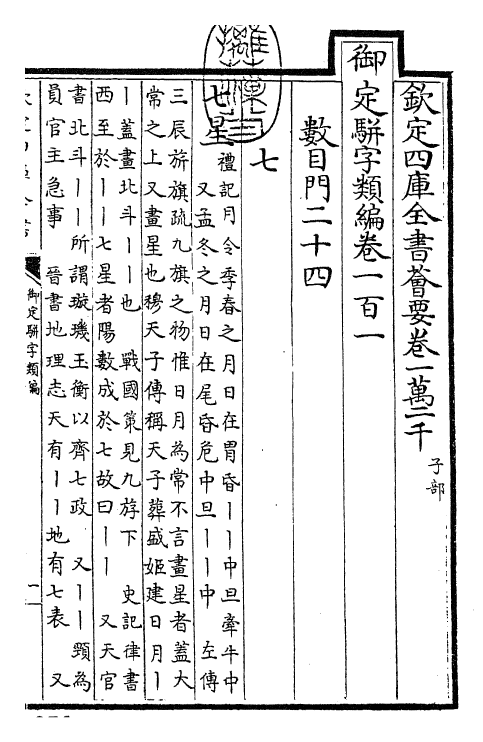 欽定四庫全書薈要卷一萬二千 子部
御定駢字類編卷一百一
數目門二十四
七
七星 禮記月令季春之月日在胃昏丨丨中旦牽牛中
又孟冬之月日在尾昏危中旦丨丨中 左傳
三辰旂旗疏九旗之物惟日月為常不言畫星者蓋大
常之上又畫星也穆天子傳稱天子葬盛姬建日月丨
丨蓋畫北斗丨丨也 戰國策見九斿下 史記律書
西至於丨丨七星者陽數成於七故曰丨丨 又天官
書北斗丨丨所謂璇璣玉衡以齊七政 又丨丨頸為
員官主急事 晉書地理志天有丨丨地有七表 又
御定駢字類編
一